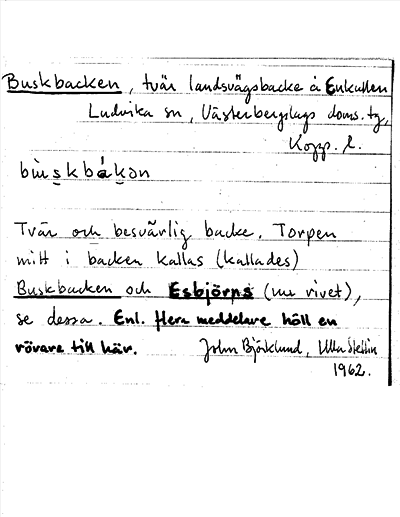 Buskbacken, tvär landsvägsbacke å Enkullen
Ludvika sn, Västerbergslags doms.tg,
Kopp. l.
bùskbákən
Tvär och besvärlig backe. Torpen
mitt i backen kallas (kallades)
Buskbacken och Esbjörns (nu rivet),
se dessa. Enl. flera meddelare höll en
rövare till här. John Björklund, Ulla Stellin
1962.